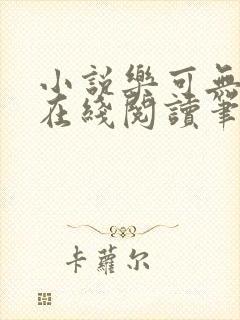 小説樂可無
在綫閱讀筆
卡蘿尔